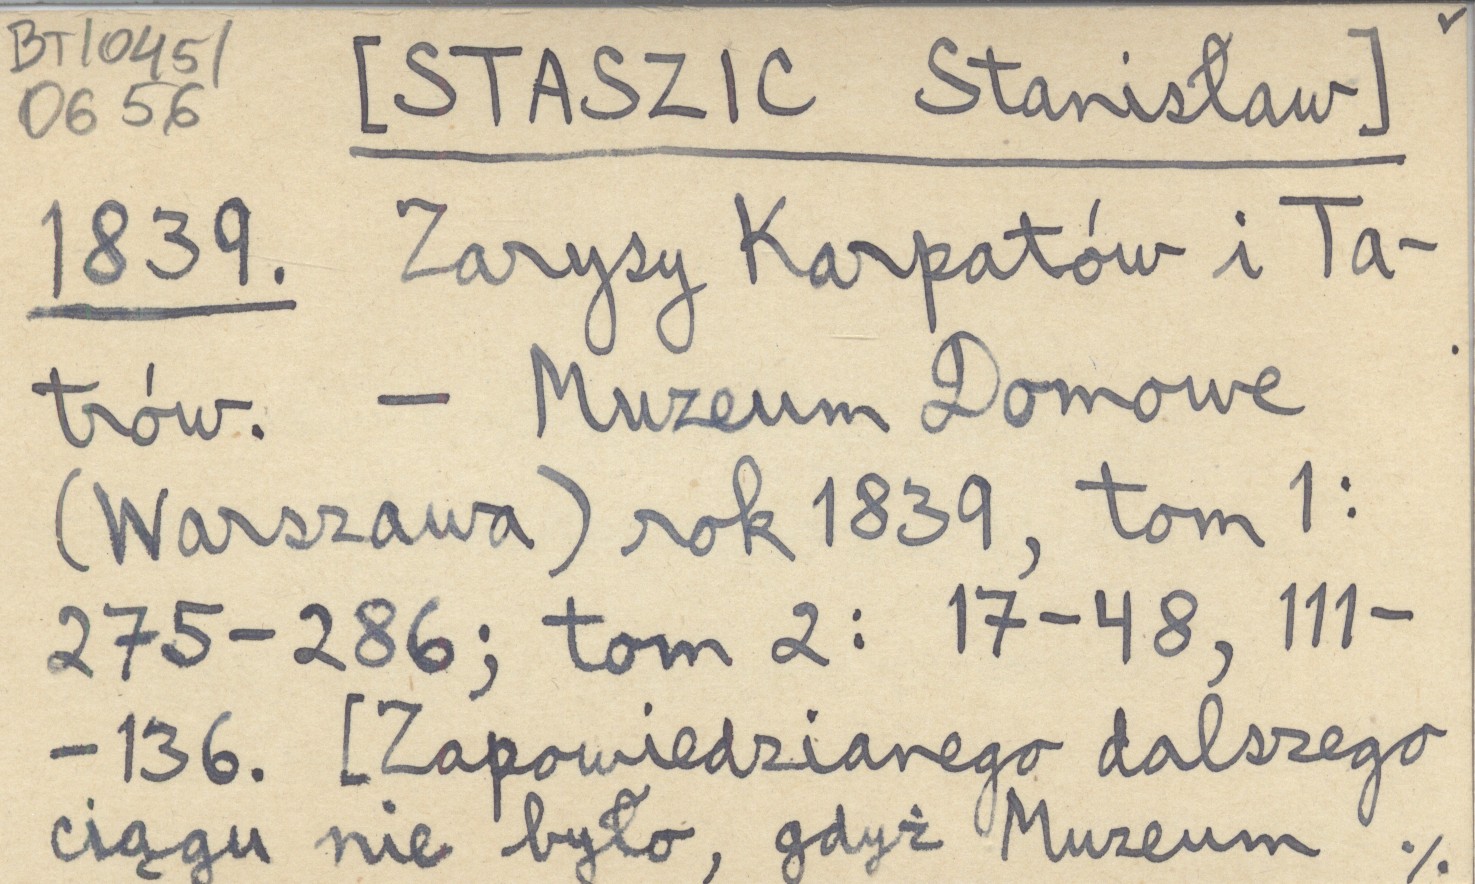 BT/045/
06 56
[STASZIC Stanisław]
1839. Zarysy Karpatów i Ta-
trów. — Muzeum Domowe
(Warszawa) rok 1839, tom 1:
275-286; tom 2: 17-48, 111-
-136. [Zapowiedzianego dalszego
ciągu nie było, gdyż Muzeum ./.